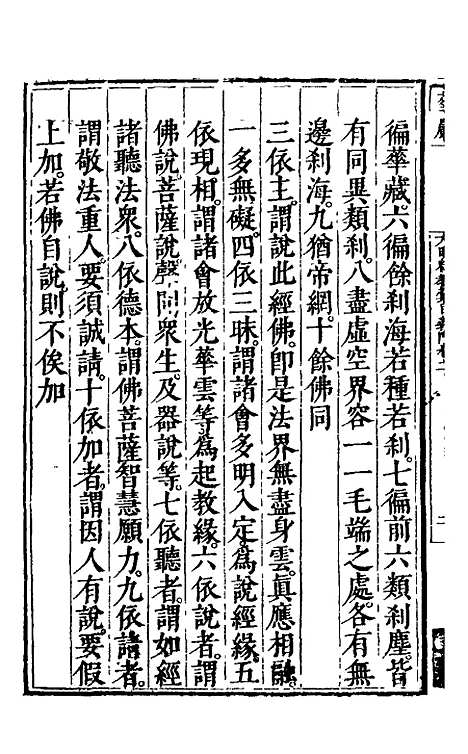 徧華藏六徧餘刹海若種若刹七徧前六類刹塵皆
有同異類刹八盡虛空界容一一毛端之處各有無
邊刹海九猶帝網十餘佛同
三依主謂說此經佛卽是法界無盡身雲眞應相融
一多無礙四依三昧謂諸會多明入定爲說經緣五
依現相謂諸會放光華雲等爲起教緣六依說者謂
佛說菩薩說聲聞衆生及器說等七依聽者謂如經
諸聽法衆八依德本謂佛菩薩智慧願力九依請者
謂敬法重人要須誠請十依加者謂因人有說要假
上加若佛自說則不俟加